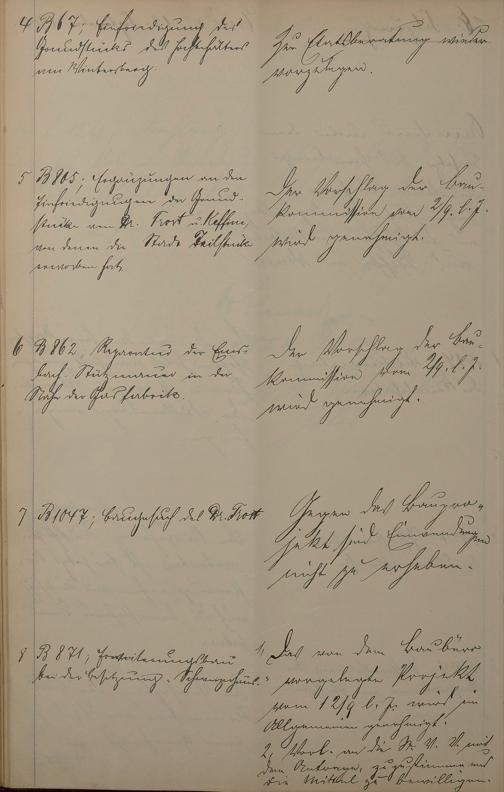 4 B 67, Einfriedigung des
Grundstücks des Hochbehälters
am Wintersberg.
Zur Etatsberatung wieder
vorzulegen.
5 B 805; Ergänzungen an den
Einfriedigungen der Grund-
stücke von Dr. Trott u.
von denen die Stadt Teilstücke
erworben hat.
Der Vorschlag der Bau-
kommission vom 2/9. l. J.
wird genehmigt.
6 B 862, Reparatur der Ems-
bach-Stützmauer in der
Nähe der Gasfabrik.
Der Vorschlag der Bau-
kommission vom 2/9. l. J.
wird genehmigt.
7 B 1047; Baugesuch des Dr. Trott
Gegen das Baupro-
jekt sind Einwendungen
nicht zu erheben.
8 B 871; Erweiterungsbau
bei der Besitzung "Schweizerhaus."
1, Das von dem Baubüro
vorgelegte Projekt
vom 12/9 l. J. wird im
Allgemeinen genehmigt.
2, Vorl. an die St. V. V. mit
dem Antrage, zuzustimmen und
die Mittel zu bewilligen.